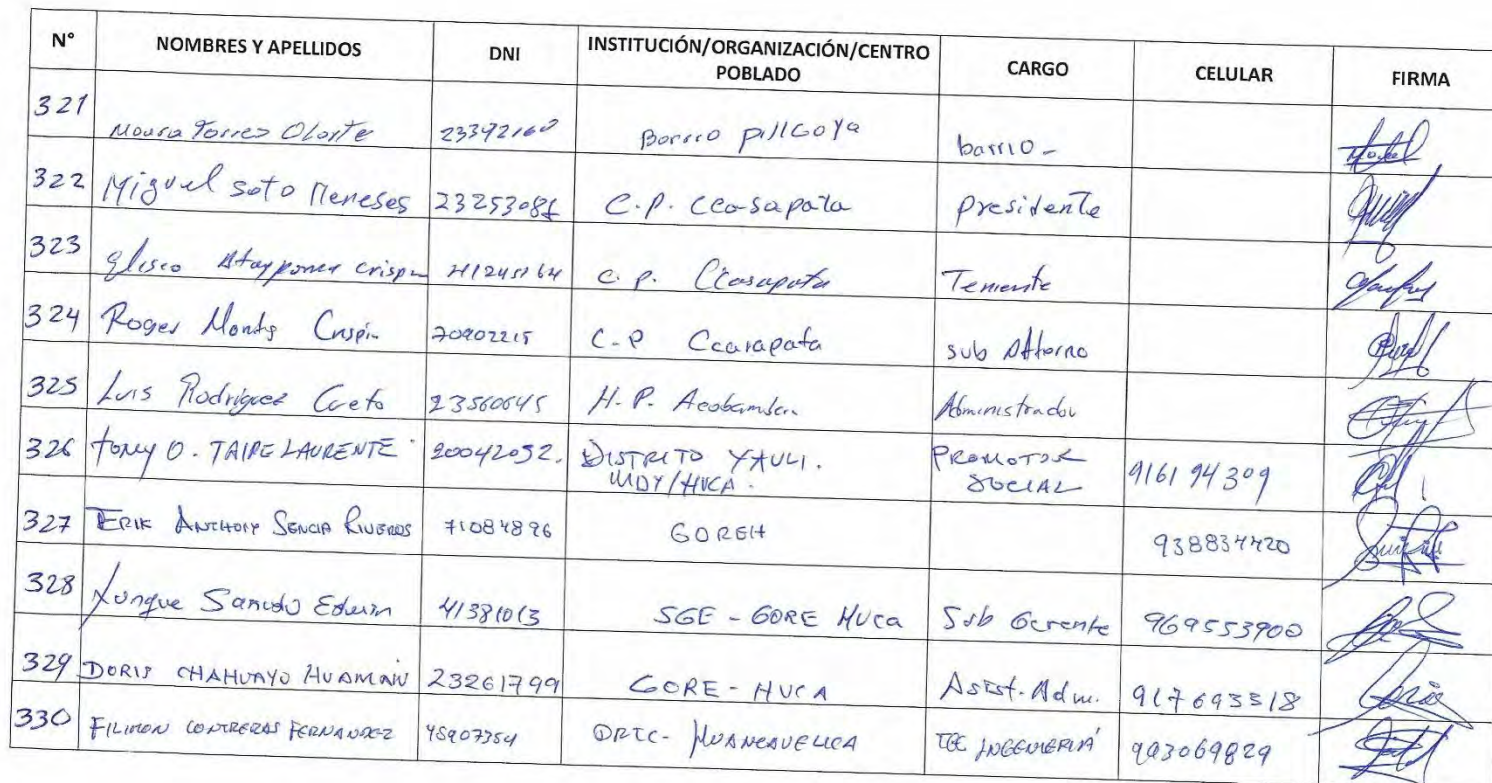 N° NOMBRES Y APELLIDOS DNI INSTITUCIÓN/ORGANIZACIÓN/CENTRO POBLADO CARGO CELULAR FIRMA
321 Torres Olarte 23392160 Barrio pillcoya barrio-
322 Miguel Soto Meneses 23253086 C.P. Ccasapata presidente
323 Eliseo Crispin 41245164 C. P. Ccasapata Teniente
324 Roger Montes Crispin 70902215 C-P Ccasapata sub
325 Luis Rodriguez Cueto 23560645 H.P. Acobamba Administrador
326 Tony O. TAIPE LAURENTE 20042052. DISTRITO YAULI. MDY/HVCA. PROMOTOR SOCIAL 916194309
327 ERIK ANTHONY RIVEROS 71084896 GOREH 938834420
328 Yunque Edwin 41381013 SGE - GORE HVCA Sub Gerente 969553900
329 DORIS CHAHUAYO HUAMAN 23261799 GORE - HVCA Asist. Adm. 917693318
330 FILIMON CONTRERAS FERNANDEZ 45907354 DRTC- HUANCAVELICA TEC INGENIERIA 993069829